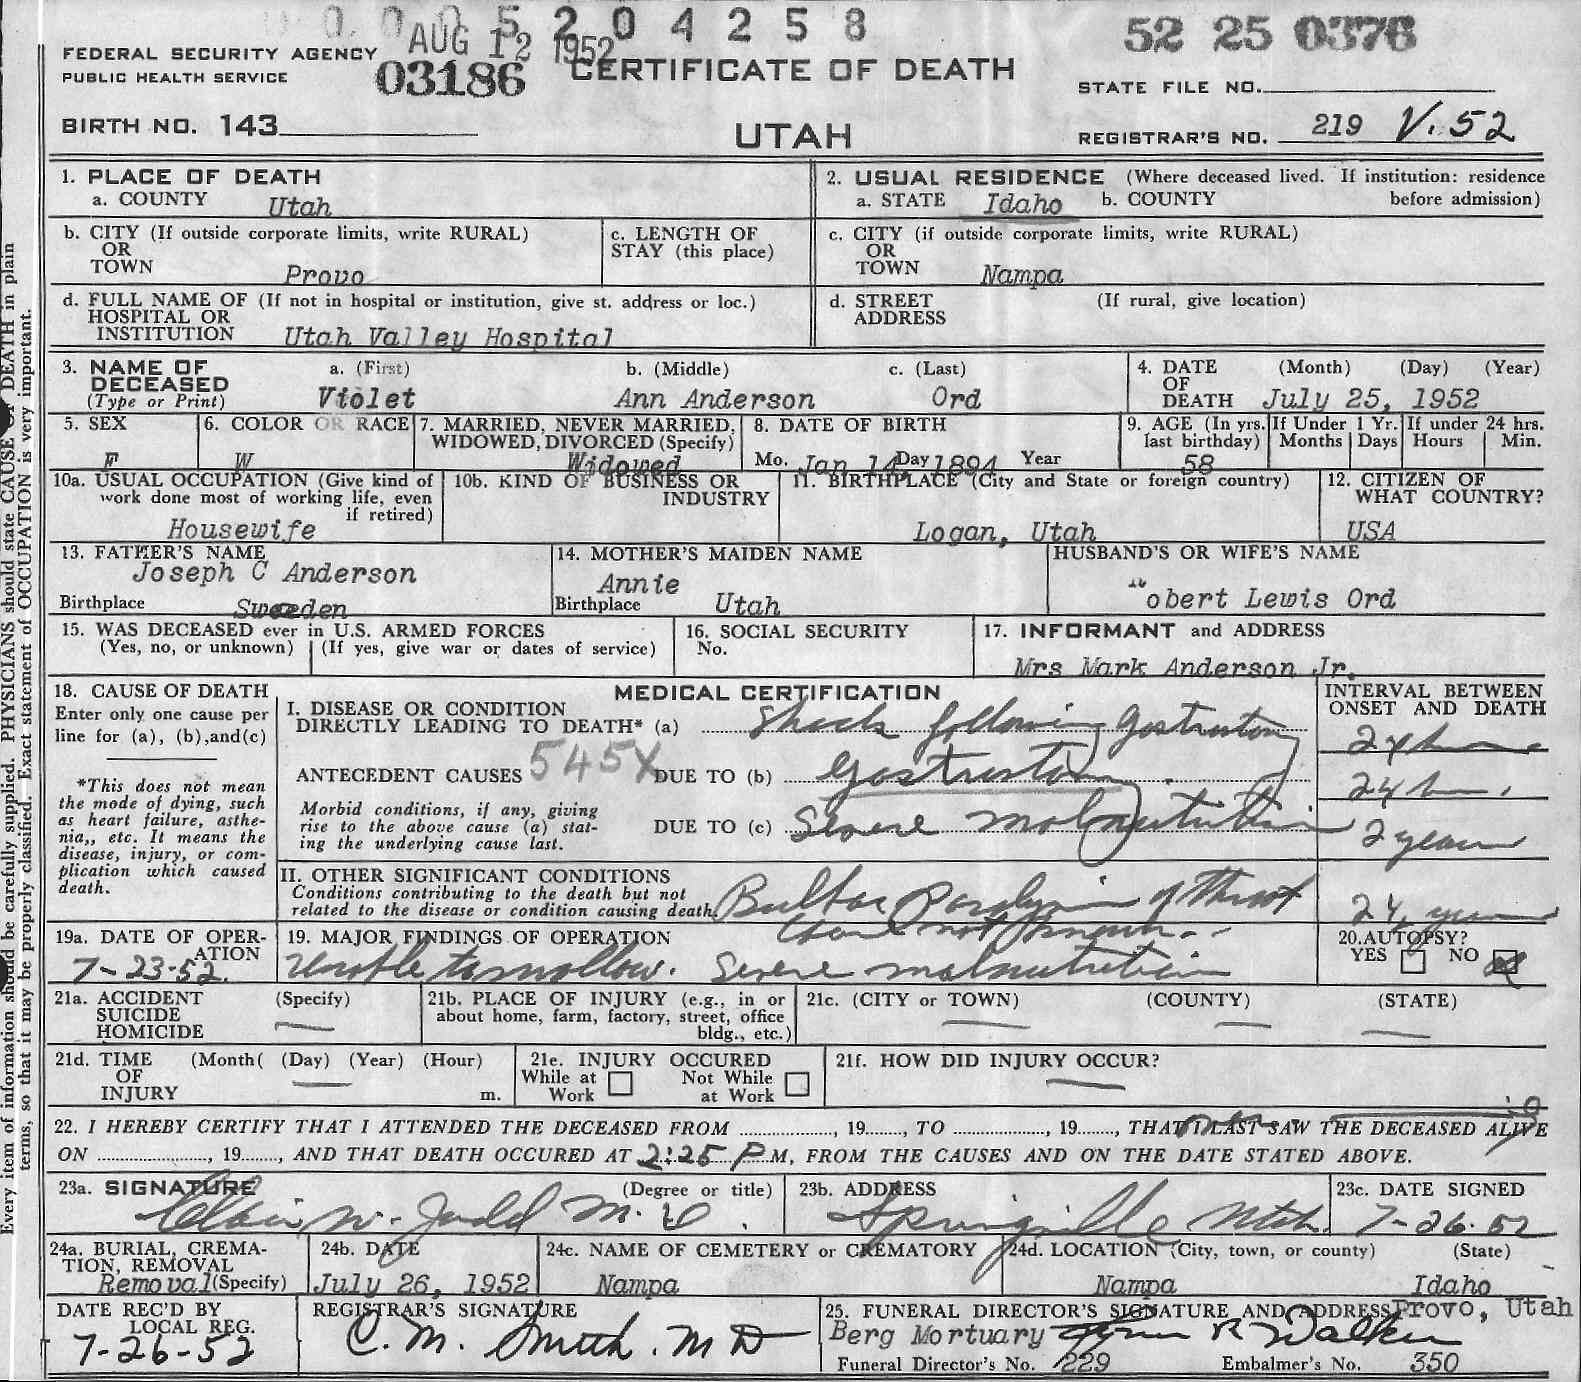 0 0 0 5 2 0 4 2 5 8
AUG 12 1952
52 25 0376
FEDERAL SECURITY AGENCY
PUBLIC HEALTH SERVICE
03186
CERTIFICATE OF DEATH
STATE FILE NO.
BIRTH NO. 143
UTAH
REGISTRAR'S NO. 219 V. 52
1. PLACE OF DEATH
a. COUNTY Utah
2. USUAL RESIDENCE (Where deceased lived. If institution: residence
a. STATE Idaho b. COUNTY before admission)
b. CITY (If outside corporate limits, write RURAL)
OR
TOWN Provo
c. LENGTH OF
STAY (this place)
c. CITY (if outside corporate limits, write RURAL)
OR
TOWN Nampa
d. FULL NAME OF (If not in hospital or institution, give st. address or loc.)
HOSPITAL OR
INSTITUTION Utah Valley Hospital
d. STREET (If rural, give location)
ADDRESS
3. NAME OF a. (First) b. (Middle) c. (Last)
DECEASED
(Type or Print) Violet Ann Anderson Ord
4. DATE (Month) (Day) (Year)
OF
DEATH July 25, 1952
5. SEX
F
6. COLOR OR RACE
W
7. MARRIED, NEVER MARRIED,
WIDOWED, DIVORCED (Specify)
Widowed
8. DATE OF BIRTH
Mo. Jan 14, Day 1894 Year
9. AGE (In yrs.
last birthday)
58
If Under 1 Yr.
Months Days
If under 24 hrs.
Hours Min.
10a. USUAL OCCUPATION (Give kind of
work done most of working life, even
if retired)
Housewife
10b. KIND OF BUSINESS OR
INDUSTRY
11. BIRTHPLACE (City and State or foreign country)
Logan, Utah
12. CITIZEN OF
WHAT COUNTRY?
USA
13. FATHER'S NAME
Joseph C Anderson
Birthplace Sweden
14. MOTHER'S MAIDEN NAME
Annie
Birthplace Utah
HUSBAND'S OR WIFE'S NAME
obert Lewis Ord
15. WAS DECEASED ever in U.S. ARMED FORCES
(Yes, no, or unknown) (If yes, give war or dates of service)
16. SOCIAL SECURITY
No.
17. INFORMANT and ADDRESS
Mrs Mark Anderson Jr.
18. CAUSE OF DEATH
Enter only one cause per
line for (a), (b), and (c)
*This does not mean
the mode of dying, such
as heart failure, asthe-
nia,, etc. It means the
disease, injury, or com-
plication which caused
death.
MEDICAL CERTIFICATION
I. DISEASE OR CONDITION
DIRECTLY LEADING TO DEATH* (a) Shock following gastrostomy
ANTECEDENT CAUSES 545X DUE TO (b) Gastrostomy
Morbid conditions, if any, giving
rise to the above cause (a) stat-
ing the underlying cause last.
DUE TO (c) Severe malnutrition
INTERVAL BETWEEN
ONSET AND DEATH
24 hours
24 hours
2 years
II. OTHER SIGNIFICANT CONDITIONS
Conditions contributing to the death but not
related to the disease or condition causing death.
Bulbar Paralysis of throat
Cause not known
24 years
19a. DATE OF OPER-
ATION
7-23-52.
19. MAJOR FINDINGS OF OPERATION
Unable to swallow. Severe malnutrition
20. AUTOPSY?
YES NO
21a. ACCIDENT (Specify)
SUICIDE
HOMICIDE
21b. PLACE OF INJURY (e.g., in or
about home, farm, factory, street, office
bldg., etc.)
21c. (CITY or TOWN) (COUNTY) (STATE)
21d. TIME (Month( (Day) (Year) (Hour)
OF
INJURY m.
21e. INJURY OCCURED
While at Work Not While at Work
21f. HOW DID INJURY OCCUR?
22. I HEREBY CERTIFY THAT I ATTENDED THE DECEASED FROM ................, 19......., TO ................, 19......., THAT I LAST SAW THE DECEASED ALIVE
ON ..................., 19......., AND THAT DEATH OCCURED AT 2:25 P M, FROM THE CAUSES AND ON THE DATE STATED ABOVE.
23a. SIGNATURE (Degree or title)
Clair W. Judd M.D.
23b. ADDRESS
Springville Utah.
23c. DATE SIGNED
7-26-52
24a. BURIAL, CREMA-
TION, REMOVAL
Removal (Specify)
24b. DATE
July 26, 1952
24c. NAME OF CEMETERY or CREMATORY
Nampa
24d. LOCATION (City, town, or county) (State)
Nampa Idaho
DATE REC'D BY
LOCAL REG.
7-26-52
REGISTRAR'S SIGNATURE
C. M. Smith. M D
25. FUNERAL DIRECTOR'S SIGNATURE AND ADDRESS Provo, Utah
Berg Mortuary R Walker
Funeral Director's No. 229 Embalmer's No. 350
Every item of information should be carefully supplied. PHYSICIANS should state CAUSE OF DEATH in plain
terms, so that it may be properly classified. Exact statement of OCCUPATION is very important.